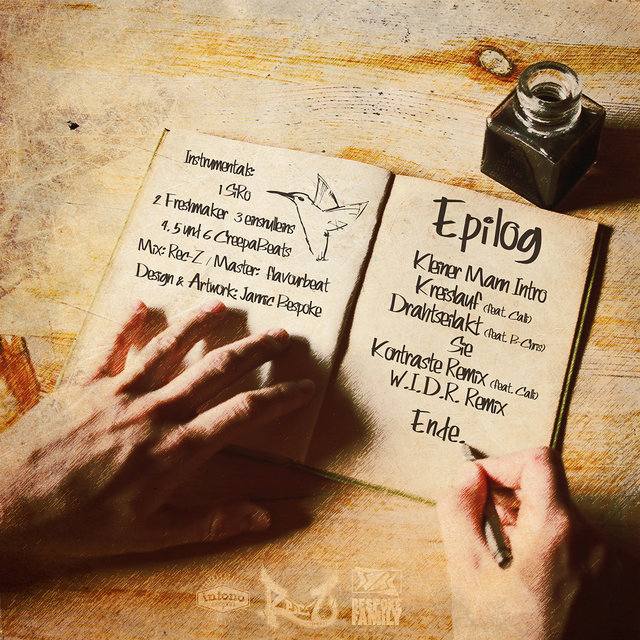 Instrumentals:
1 SiRo
2 Freshmaker 3 einsnulleins
4, 5 und 6 CreepaBeats
Mix: Rec-Z / Master: flavourbeat
Design & Artwork: Jannic Bespoke
Epilog
Kleiner Mann Intro
Kreislauf (feat. Cali)
Drahtseilakt (feat. B-Chris)
Sie
Kontraste Remix (feat. Cali)
W.I.D.R. Remix
Ende.
intono
Rec-Z